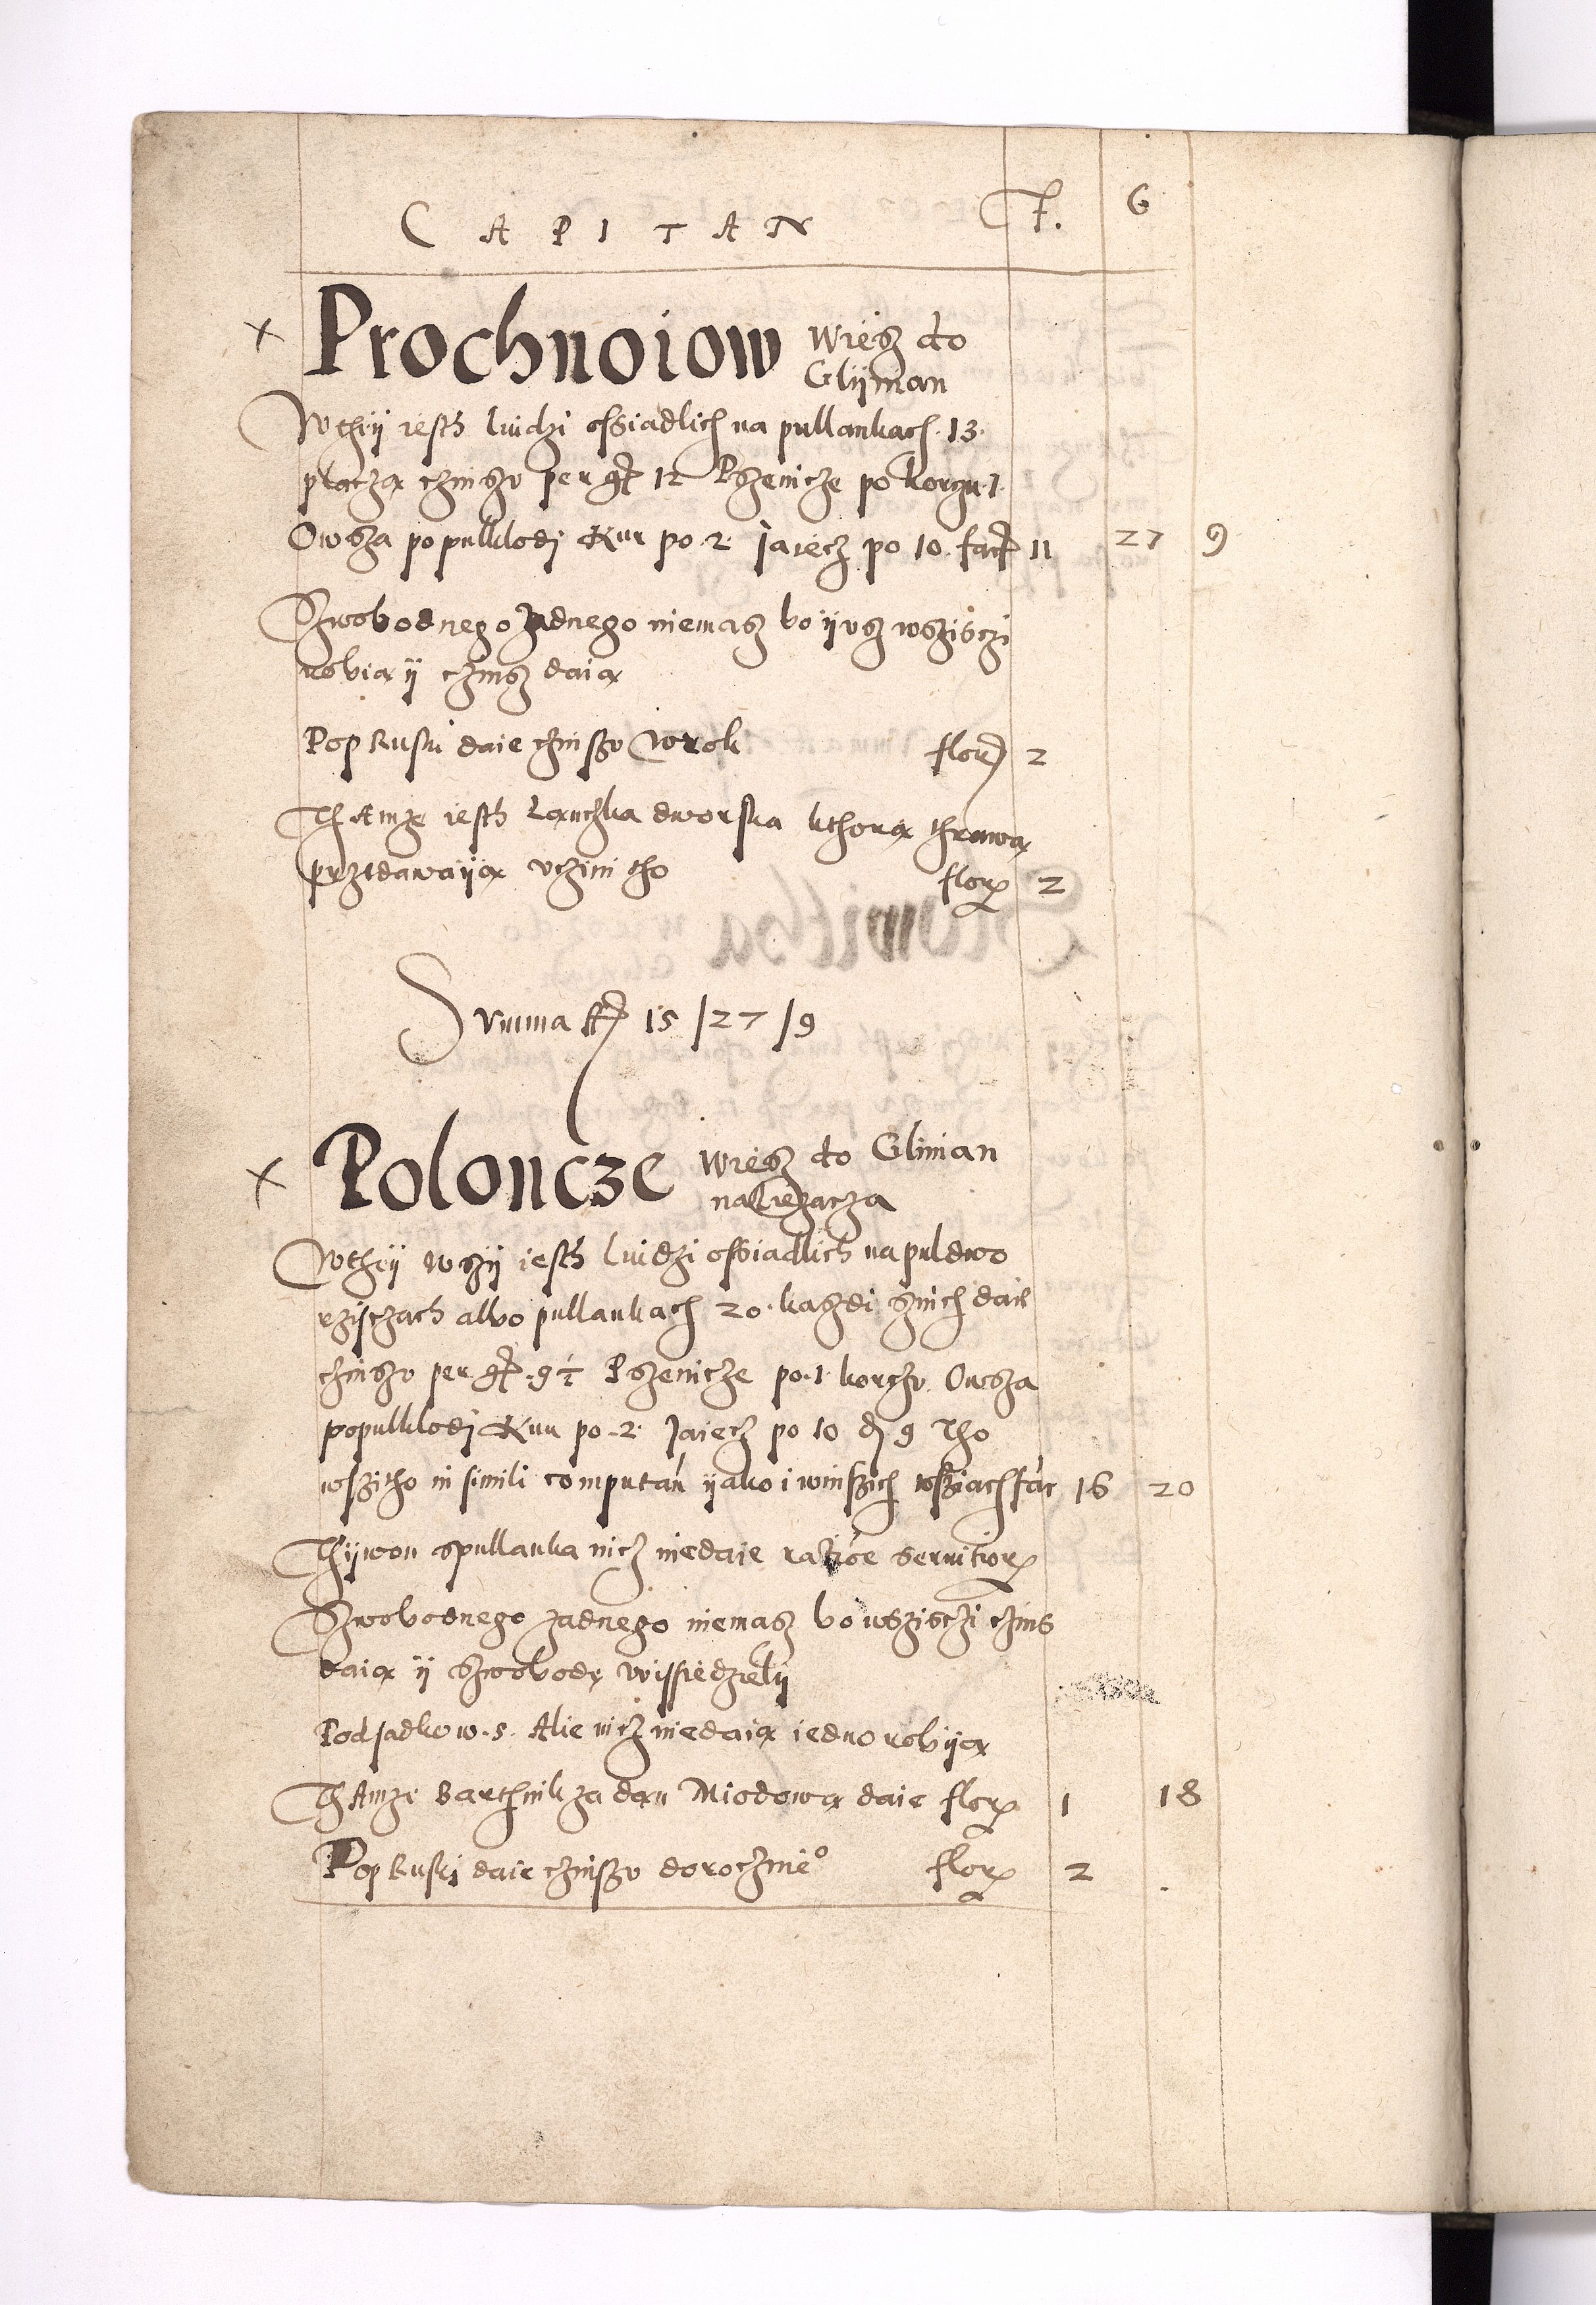 CAPITAN F. G
× Prochnoiow Wiesz do
Glijnian
Wthij iesth luidzi ossiadlich na pullankach 13
płacza czinszv per gr 12 Pszenicze po korczu 1
Owsza po pulklodj Kur po 2 Jaiecz po 10 facit 11 27 9
Szwobodnego zadnego niemasz bo ijvsz wszisczi
robia ij czinsz daia
Pop Ruski daie czinszv wrok flor 2
Thamze iesth Lanczka dworska kthora thrawa
przedawaija vczini tho flor 2
Summa fl 15 / 27 / 9
× Poloncze Wiesz do Glinian
naliezacza
Wthij wszij iesth luidzi ossiadlich na puldwo
rzisczach albo pullankach 20 kaszdi sznich daie
czinszv per gr 9 ½ Pszenicze po 1 korczv Owsza
po pulklodj Kur po 2 Jaiecz po 10 d 9 Tho
wszitko in simili computan ijako i winszich wsziach fac 16 20
Thijwon spullanka nicz niedaie ratione seruitior
Szwobodnego zadnego niemasz bo wszisczi czins
daia ij szwobode wissiedzielij
Podsadkow 5 Alie nicz niedaia iedno robija
Thamze Barthnik za dan Miodowa daie flor 1 18
Pop Ruskj daie czinszv doroczne° flor 2